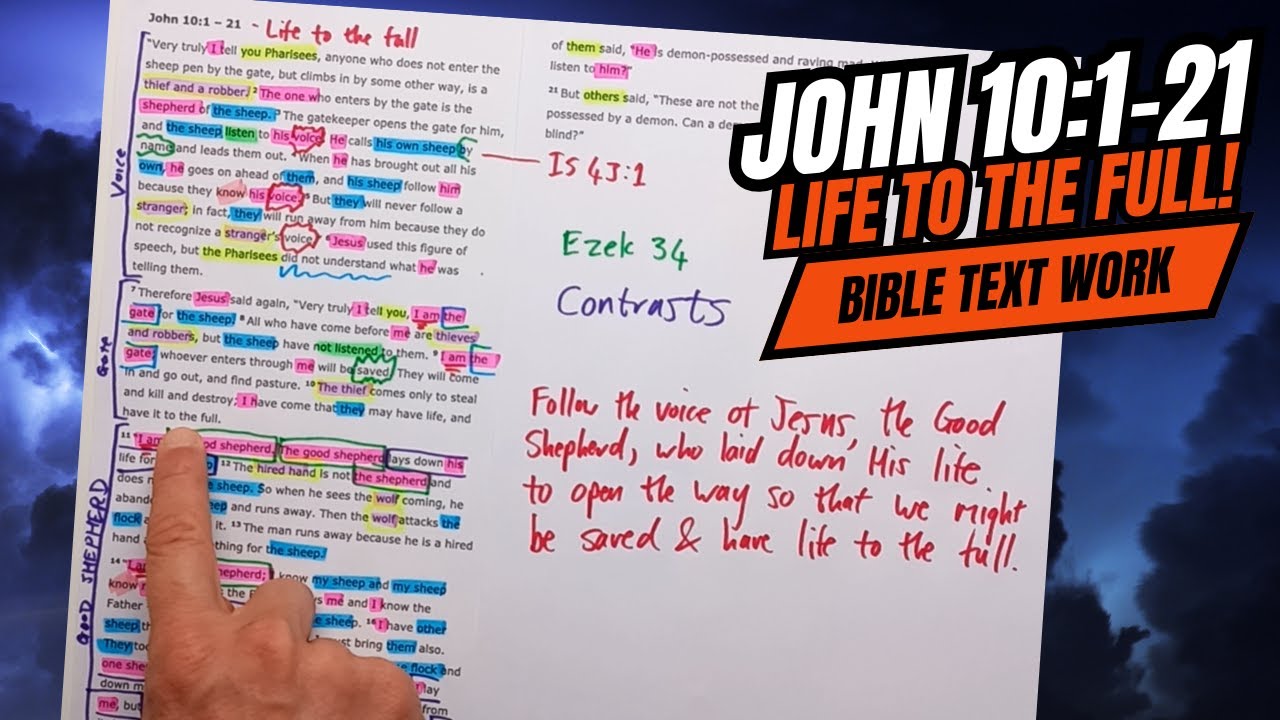 John 10:1 – 21 - Life to the full
"Very truly I tell you Pharisees, anyone who does not enter the
sheep pen by the gate, but climbs in by some other way, is a
thief and a robber. 2 The one who enters by the gate is the
shepherd of the sheep. 3 The gatekeeper opens the gate for him,
and the sheep listen to his voice. He calls his own sheep by
name and leads them out. 4 When he has brought out all his
own, he goes on ahead of them, and his sheep follow him
because they know his voice. 5 But they will never follow a
stranger; in fact, they will run away from him because they do
not recognize a stranger's voice." 6 Jesus used this figure of
speech, but the Pharisees did not understand what he was
telling them.
Voice
7 Therefore Jesus said again, "Very truly I tell you, I am the
gate for the sheep. 8 All who have come before me are thieves
and robbers, but the sheep have not listened to them. 9 I am the
gate; whoever enters through me will be saved. They will come
in and go out, and find pasture. 10 The thief comes only to steal
and kill and destroy; I have come that they may have life, and
have it to the full.
11 "I am good shepherd. The good shepherd lays down his
life for 12 The hired hand is not the shepherd and
does sheep. So when he sees the wolf coming, he
and runs away. Then the wolf attacks the
flock it. 13 The man runs away because he is a hired
hand for the sheep.
GOOD SHEPHERD
14 "I am shepherd; I know my sheep and my sheep
know me and I know the
Father sheep. 16 I have other
sheep must bring them also.
They flock and
one lay
down
me, but from
of them said, "He is demon-possessed and raving mad.
listen to him?"
21 But others said, "These are not the
possessed by a demon. Can a
blind?"
Is 43:1
Ezek 34
Contrasts
Follow the voice of Jesus, the Good
Shepherd, who laid down His life
to open the way so that we might
be saved & have life to the full.
JOHN 10:1-21
LIFE TO THE FULL!
BIBLE TEXT WORK